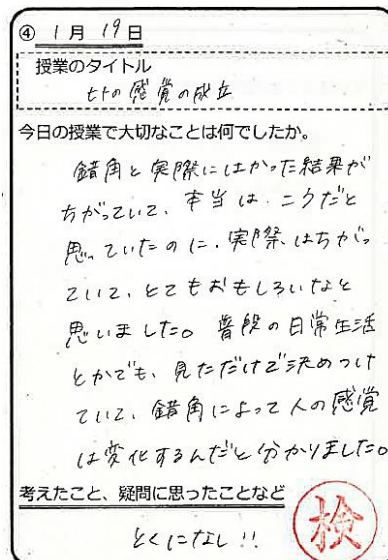 ④ 1月19日
授業のタイトル
ヒトの感覚の成立
今日の授業で大切なことは何でしたか。
錯角と実際にはかった結果が
ちがっていて、本当は、こうだと
思っていたのに、実際はちがっ
ていて、とてもおもしろいなと
思いました。普段の日常生活
とかでも、見ただけで決めつけ
ていて、錯角によって人の感覚
は変化するんだと分かりました。
考えたこと、疑問に思ったことなど
とくになし!!
検